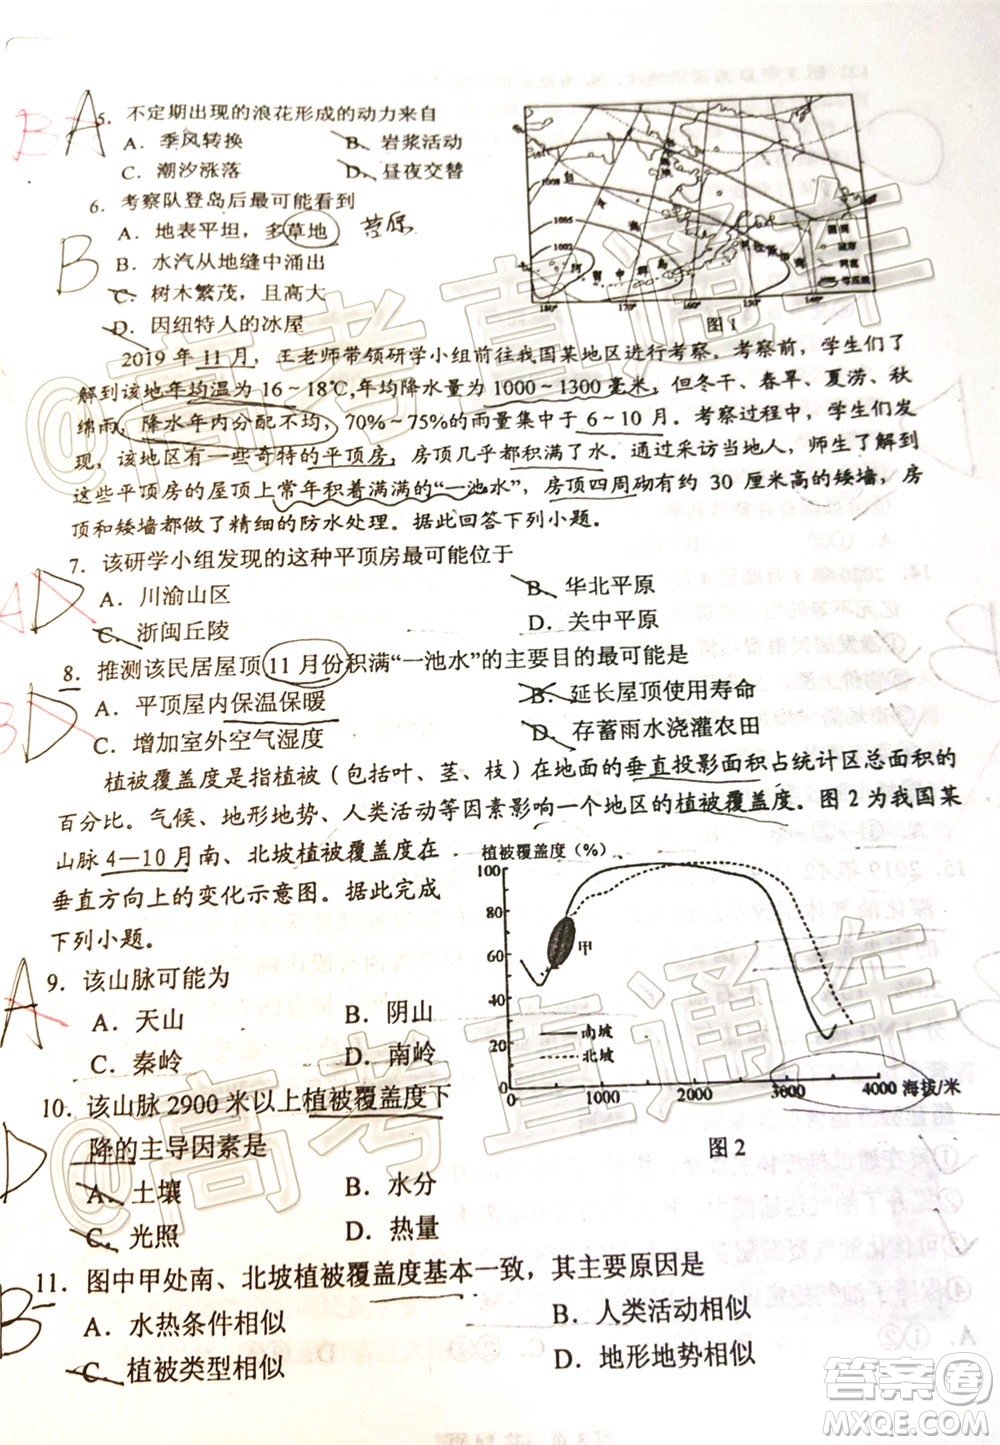 5．不定期出现的浪花形成的动力来自
A．季风转换 B．岩浆活动
C．潮汐涨落 D．昼夜交替
6．考察队登岛后最可能看到
A．地表平坦，多草地
B．水汽从地缝中涌出
C．树木繁茂，且高大
D．因纽特人的冰屋
图1
2019年11月，王老师带领研学小组前往我国某地区进行考察。考察前，学生们了
解到该地年均温为16～18℃,年均降水量为1000～1300毫米，但冬干、春旱、夏涝、秋
绵雨，降水年内分配不均，70%～75%的雨量集中于6～10月。考察过程中，学生们发
现，该地区有一些奇特的平顶房，房顶几乎都积满了水。通过采访当地人，师生了解到
这些平顶房的屋顶上常年积着满满的“一池水”，房顶四周砌有约30厘米高的矮墙，房
顶和矮墙都做了精细的防水处理。据此回答下列小题。
7．该研学小组发现的这种平顶房最可能位于
A．川渝山区 B．华北平原
C．浙闽丘陵 D．关中平原
8．推测该民居屋顶11月份积满“一池水”的主要目的最可能是
A．平顶屋内保温保暖 B．延长屋顶使用寿命
C．增加室外空气湿度 D．存蓄雨水浇灌农田
植被覆盖度是指植被（包括叶、茎、枝）在地面的垂直投影面积占统计区总面积的
百分比。气候、地形地势、人类活动等因素影响一个地区的植被覆盖度。图2为我国某
山脉4—10月南、北坡植被覆盖度在
垂直方向上的变化示意图。据此完成
下列小题。
植被覆盖度（%）
100
80
60
40
20
0
甲
南坡
北坡
0 1000 2000 3000 4000 海拔/米
图2
9．该山脉可能为
A．天山 B．阴山
C．秦岭 D．南岭
10．该山脉2900米以上植被覆盖度下
降的主导因素是
A．土壤 B．水分
C．光照 D．热量
11．图中甲处南、北坡植被覆盖度基本一致，其主要原因是
A．水热条件相似 B．人类活动相似
C．植被类型相似 D．地形地势相似
@高考直通车
@高考直通车
答案圈
MXQE.COM